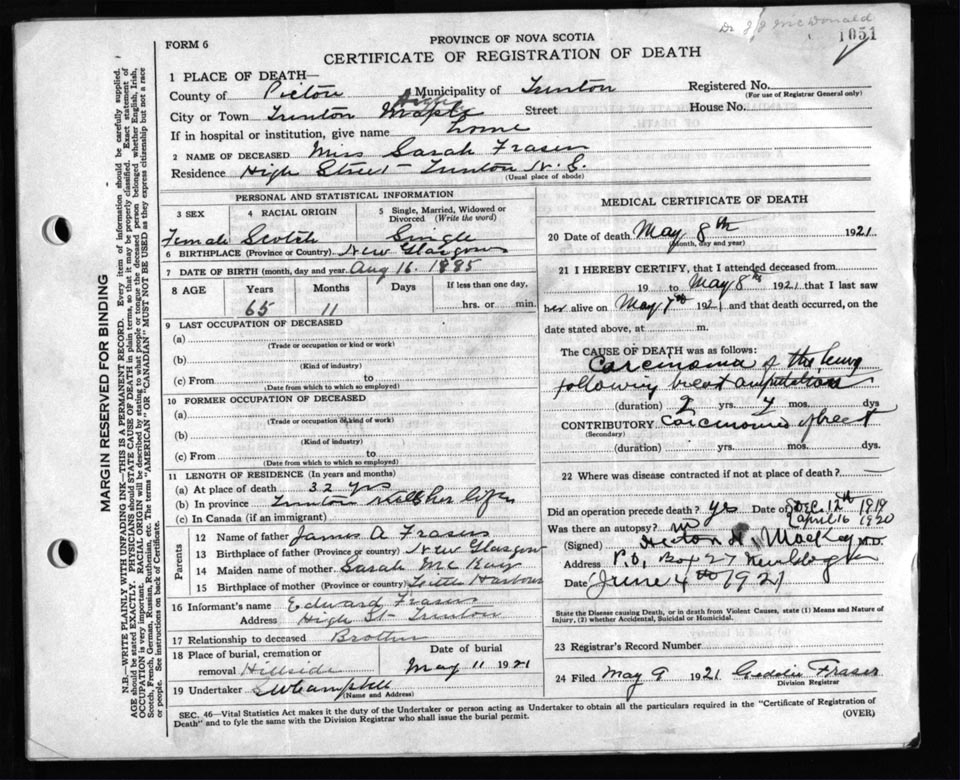 Dr J J McDonald
1051
FORM 6
PROVINCE OF NOVA SCOTIA
CERTIFICATE OF REGISTRATION OF DEATH
1 PLACE OF DEATH—
County of Pictou Municipality of Trenton Registered No.
(For use of Registrar General only)
City or Town Trenton Maple High Street House No.
If in hospital or institution, give name home
2 NAME OF DECEASED Miss Sarah Fraser
Residence High Street Trenton N.S.
(Usual place of abode)
PERSONAL AND STATISTICAL INFORMATION
3 SEX 4 RACIAL ORIGIN 5 Single, Married, Widowed or Divorced (Write the word)
Female Scotch Single
6 BIRTHPLACE (Province or Country) New Glasgow
7 DATE OF BIRTH (month, day and year) Aug 16. 1885
8 AGE Years Months Days If less than one day,
65 11 hrs. or min.
9 LAST OCCUPATION OF DECEASED
(a)
(Trade or occupation or kind of work)
(b)
(Kind of industry)
(c) From to
(Date from which to which so employed)
10 FORMER OCCUPATION OF DECEASED
(a)
(Trade or occupation or kind of work)
(b)
(Kind of industry)
(c) From to
(Date from which to which so employed)
11 LENGTH OF RESIDENCE (In years and months)
(a) At place of death 32 yrs
(b) In province Trenton all her life
(c) In Canada (if an immigrant)
Parents
12 Name of father James A Fraser
13 Birthplace of father (Province or country) New Glasgow
14 Maiden name of mother Sarah McKay
15 Birthplace of mother (Province or country) Little Harbour
16 Informant's name Edward Fraser
Address High St Trenton
17 Relationship to deceased Brother
18 Place of burial, cremation or removal Hillside Date of burial May 11 1921
19 Undertaker SW Campbell
(Name and Address)
MEDICAL CERTIFICATE OF DEATH
20 Date of death May 8th 1921
(Month, day and year)
21 I HEREBY CERTIFY, that I attended deceased from
19 to May 8th 1921 that I last saw
her alive on May 7th 1921 and that death occurred, on the
date stated above, at m.
The CAUSE OF DEATH was as follows:
Carcinoma of the lung
following breast amputation
(duration) 2 yrs. 4 mos. dys.
CONTRIBUTORY Carcinoma of breast
(Secondary)
(duration) yrs. mos. dys.
22 Where was disease contracted if not at place of death?
Did an operation precede death? Yes Date of Dec. 12th 1919
April 16 1920
Was there an autopsy? no
(Signed) Hector H. Mackay M.D.
Address P.O. Box 427 New Glasgow
Date June 4th 1921
State the Disease causing Death, or in death from Violent Causes, state (1) Means and Nature of
Injury, (2) whether Accidental, Suicidal or Homicidal.
23 Registrar's Record Number
24 Filed May 9 1921 Fraser
Division Registrar
SEC. 46—Vital Statistics Act makes it the duty of the Undertaker or person acting as Undertaker to obtain all the particulars required in the "Certificate of Registration of
Death" and to fyle the same with the Division Registrar who shall issue the burial permit. (OVER)
MARGIN RESERVED FOR BINDING
N.B.—WRITE PLAINLY WITH UNFADING INK—THIS IS A PERMANENT RECORD. Every item of information should be carefully supplied.
AGE should be stated EXACTLY. PHYSICIANS should STATE CAUSE OF DEATH in plain terms, so that it may be properly classified. Exact statement of
OCCUPATION is very important. RACIAL ORIGIN will be described by stating to what people or tongue the deceased person belonged whether English, Irish,
Scotch, French, German, Russian, Ruthenian, etc. The terms "AMERICAN" OR "CANADIAN" MUST NOT BE USED as they express citizenship but not a race
or people. See instructions on back of Certificate.